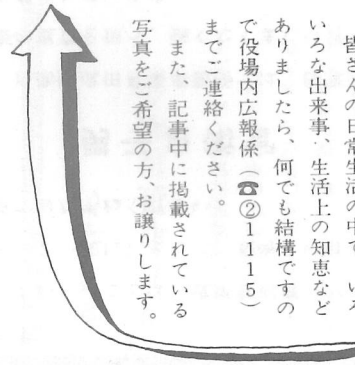 皆さんの日常生活の中で、いろ
いろな出来事、生活上の知恵など
ありましたら、何でも結構ですの
で役場内広報係（☎②1115）
までご連絡ください。
また、記事中に掲載されている
写真をご希望の方、お譲りします。